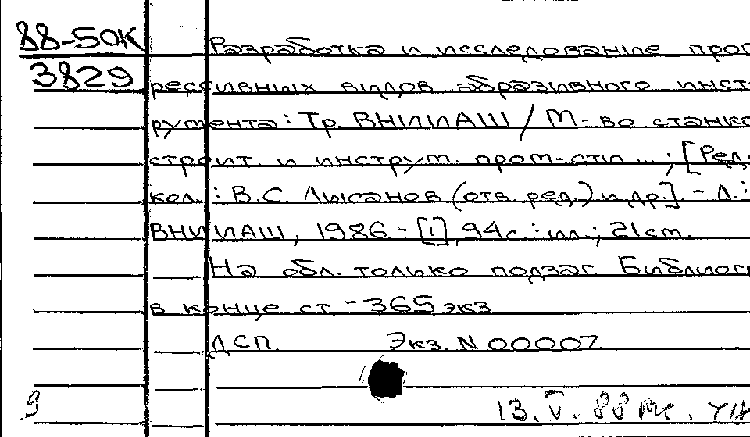 88-50К
3829
Разработка и исследование прог
рессивных видов абразивного инст
румента: Тр. ВНИИАШ / М-во станко
строит. и инструм. пром-сти ...; [Ред.
кол.: В.С. Лысанов (отв. ред.) и др.] - Л.:
ВНИИАШ, 1986 - [1], 94с.: ил.; 21см.
На обл. только подзаг. Библиог
в конце ст. - 365 экз
ДСП. Экз. N 00007
9
13.V.88